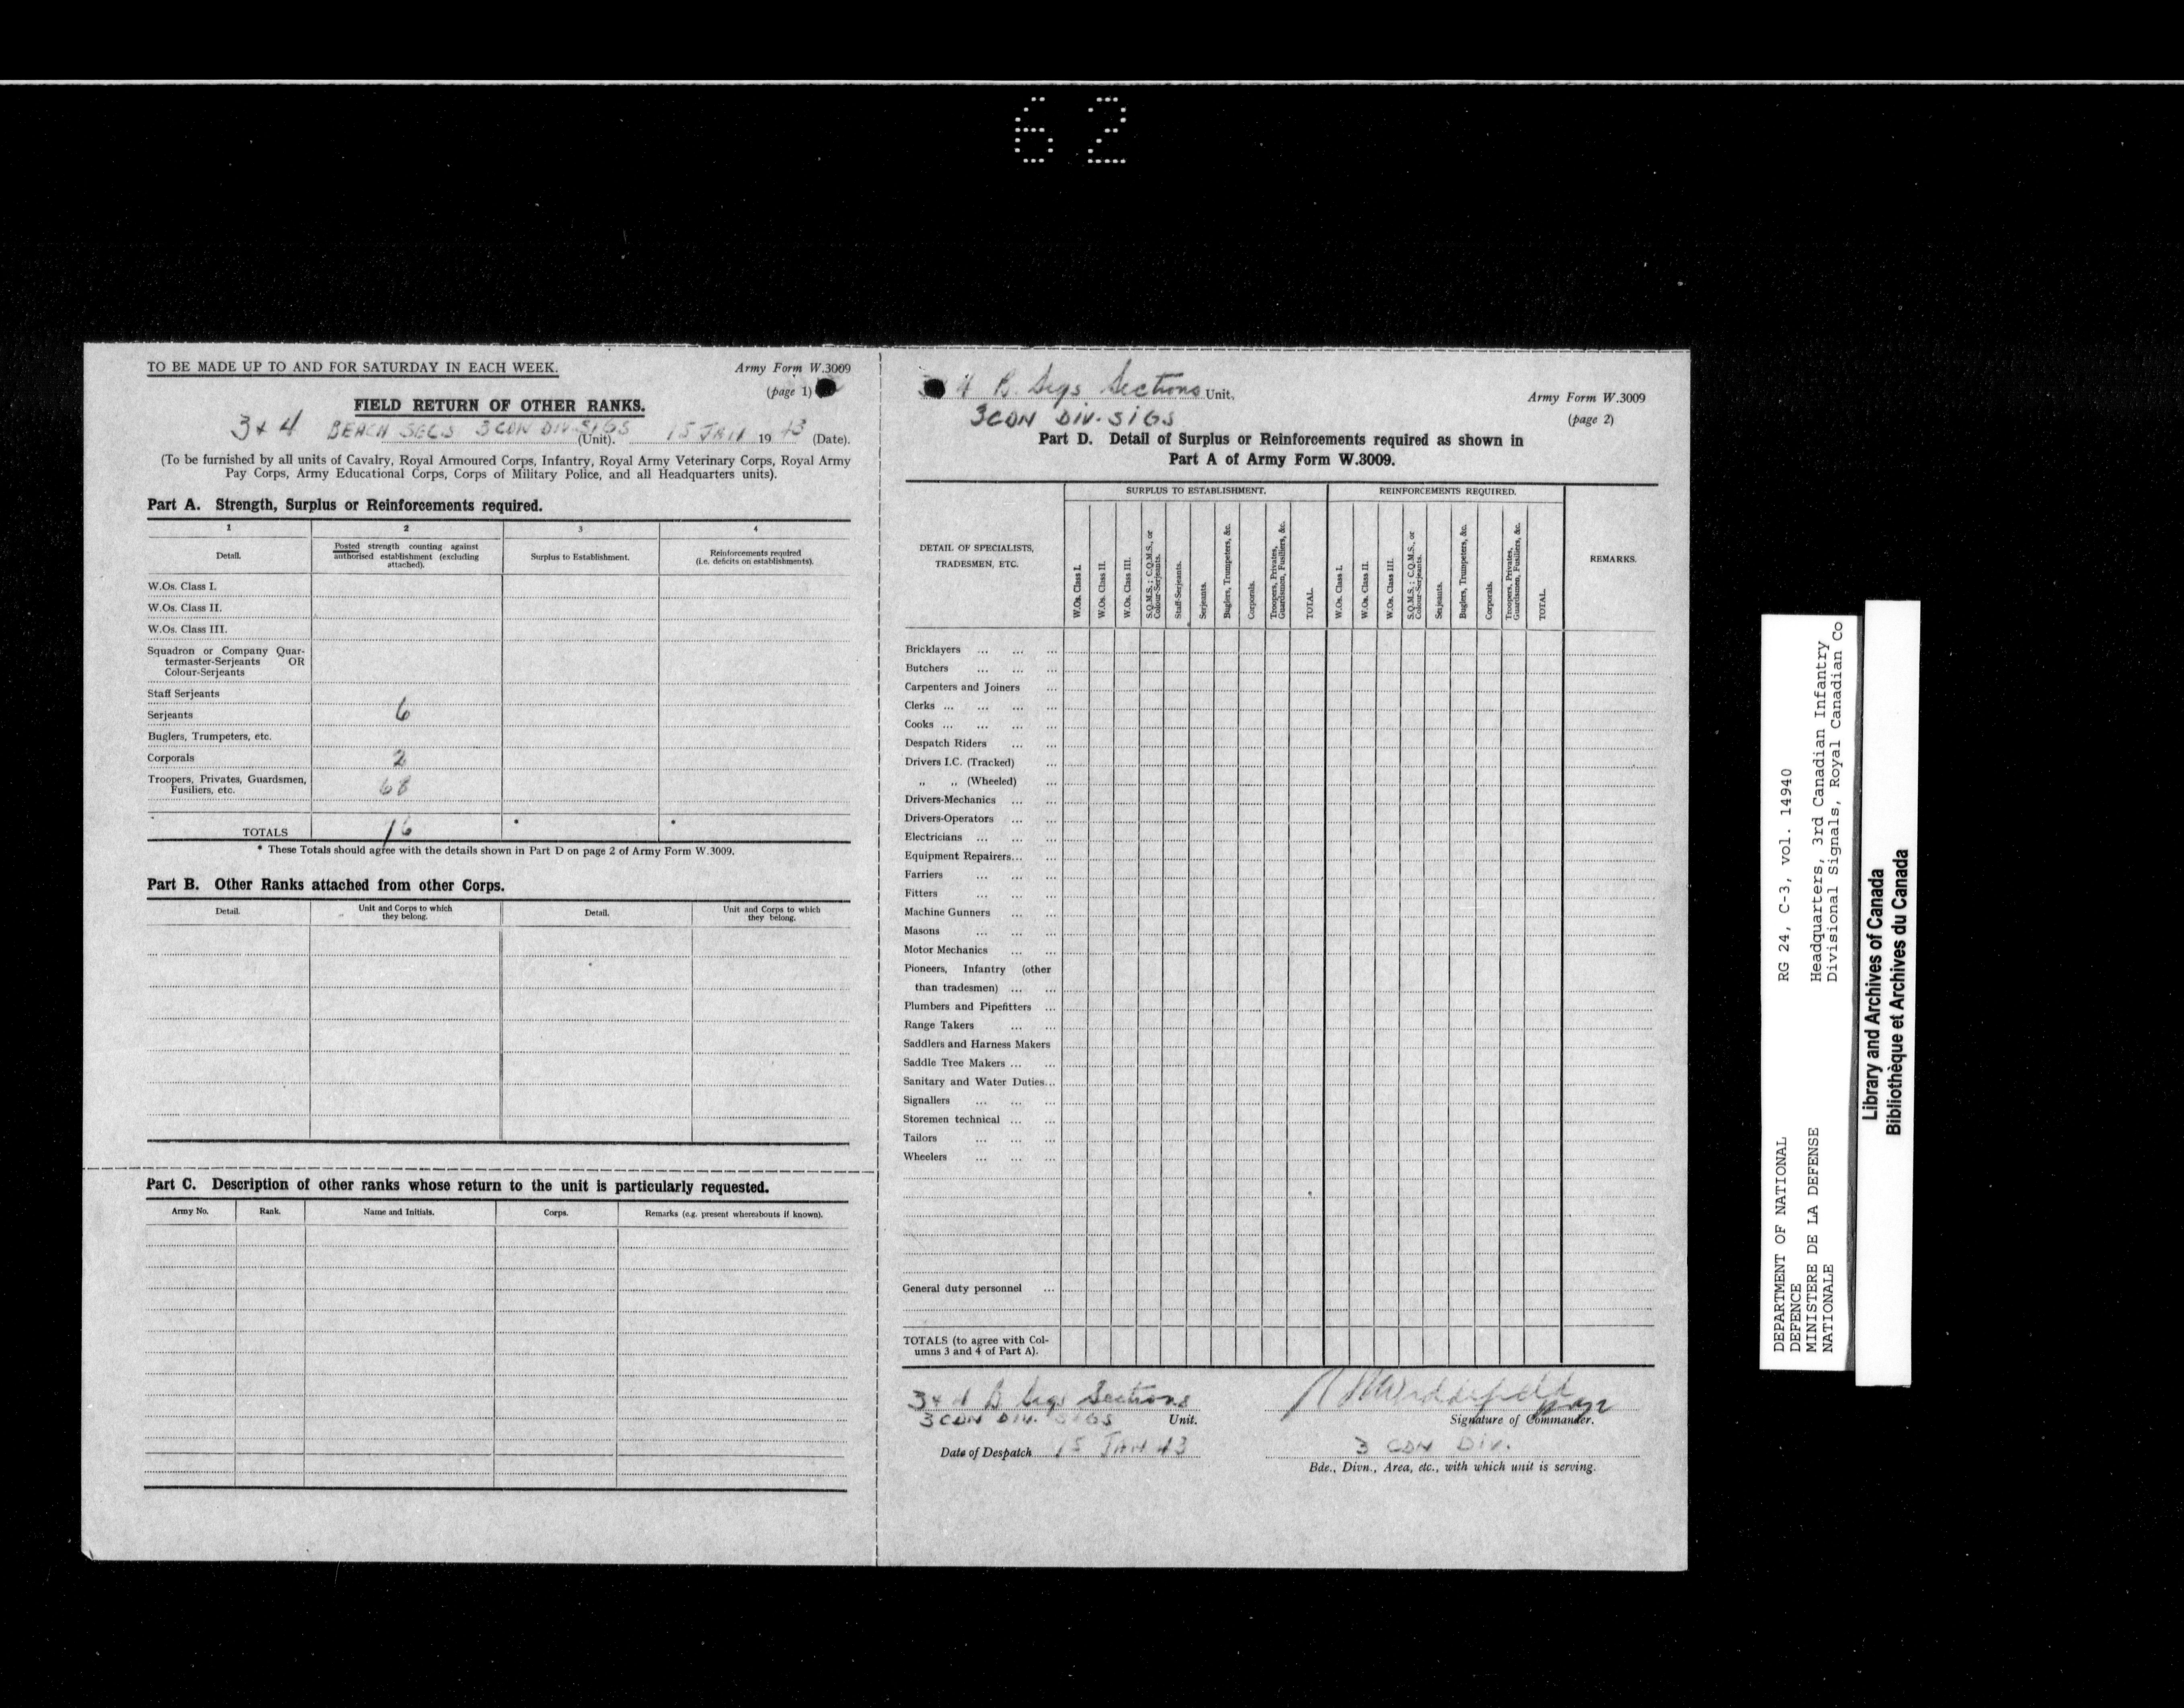 62
TO BE MADE UP TO AND FOR SATURDAY IN EACH WEEK.
Army Form W.3009
(page 1)
FIELD RETURN OF OTHER RANKS.
3 & 4 BEACH SECS 3 CDN DIV-SIGS (Unit). 15 JAN 1943 (Date).
(To be furnished by all units of Cavalry, Royal Armoured Corps, Infantry, Royal Army Veterinary Corps, Royal Army
Pay Corps, Army Educational Corps, Corps of Military Police, and all Headquarters units).
Part A. Strength, Surplus or Reinforcements required.
1 2 3 4
Detail.
Posted strength counting against
authorised establishment (excluding
attached).
Surplus to Establishment.
Reinforcements required
(i.e. deficits on establishments).
W.Os. Class I.
W.Os. Class II.
W.Os. Class III.
Squadron or Company Quar-
termaster-Serjeants OR
Colour-Serjeants
Staff Serjeants
Serjeants 6
Buglers, Trumpeters, etc.
Corporals 2
Troopers, Privates, Guardsmen, 68
Fusiliers, etc.
TOTALS 76 * *
* These Totals should agree with the details shown in Part D on page 2 of Army Form W.3009.
Part B. Other Ranks attached from other Corps.
Detail.
Unit and Corps to which
they belong.
Detail.
Unit and Corps to which
they belong.
Part C. Description of other ranks whose return to the unit is particularly requested.
Army No. Rank. Name and Initials. Corps. Remarks (e.g. present whereabouts if known).
4 B. Sigs. Sections Unit.
3 CDN DIV-SIGS
Army Form W.3009
(page 2)
Part D. Detail of Surplus or Reinforcements required as shown in
Part A of Army Form W.3009.
DETAIL OF SPECIALISTS,
TRADESMEN, ETC.
SURPLUS TO ESTABLISHMENT.
W.Os. Class I.
W.Os. Class II.
W.Os. Class III.
S.Q.M.S.; C.Q.M.S., or
Colour-Serjeants.
Staff-Serjeants.
Serjeants.
Buglers, Trumpeters, &c.
Corporals.
Troopers, Privates,
Guardsmen, Fusiliers, &c.
TOTAL.
REINFORCEMENTS REQUIRED.
W.Os. Class I.
W.Os. Class II.
W.Os. Class III.
S.Q.M.S.; C.Q.M.S., or
Colour-Serjeants.
Serjeants.
Buglers, Trumpeters, &c.
Corporals.
Troopers, Privates,
Guardsmen, Fusiliers, &c.
TOTAL.
REMARKS.
Bricklayers ... ... ...
Butchers ... ... ...
Carpenters and Joiners ...
Clerks ... ... ... ...
Cooks ... ... ... ...
Despatch Riders ... ...
Drivers I.C. (Tracked) ...
„ „ (Wheeled) ...
Drivers-Mechanics ... ...
Drivers-Operators ... ...
Electricians ... ... ...
Equipment Repairers... ...
Farriers ... ... ...
Fitters ... ... ...
Machine Gunners ... ...
Masons ... ... ...
Motor Mechanics ... ...
Pioneers, Infantry (other
than tradesmen) ... ...
Plumbers and Pipefitters ...
Range Takers ... ...
Saddlers and Harness Makers
Saddle Tree Makers ... ...
Sanitary and Water Duties...
Signallers ... ... ...
Storemen technical ... ...
Tailors ... ... ...
Wheelers ... ... ...
General duty personnel ...
TOTALS (to agree with Col-
umns 3 and 4 of Part A).
3 & 4 B Sigs Sections
3 CDN DIV. SIGS Unit.
Date of Despatch 15 JAN 43
Signature of Commander.
3 CDN DIV.
Bde., Divn., Area, etc., with which unit is serving.
DEPARTMENT OF NATIONAL
DEFENCE
MINISTERE DE LA DEFENSE
NATIONALE
RG 24, C-3, vol. 14940
Headquarters, 3rd Canadian Infantry
Divisional Signals, Royal Canadian Co
Library and Archives of Canada
Bibliothèque et Archives du Canada